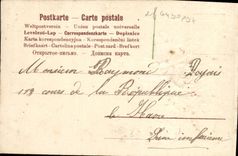 Postkarte — Carte postale
Weltpostverein — Union postale universelle
Levelező-Lap — Correspondenzkarte — Dopisnice
Karta korespondencyjna — Korespondenční lístek
Briefkaart — Cartolina postale — Postcard — Brefkort
Открытое письмо. — Дописна карта
Monsieur Raymond
158 cours de la République
Le Havre
Seine inférieure